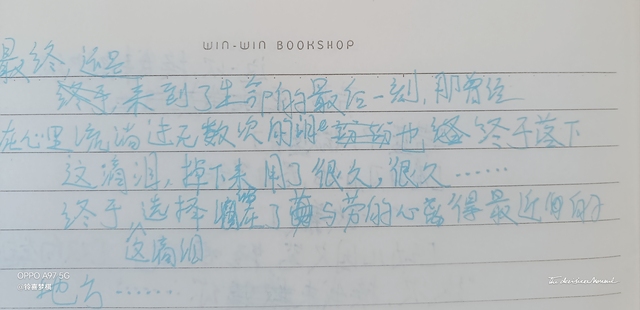 WIN-WIN BOOKSHOP
最终,还是
终于,来到了生命的最后一刻,那曾经
在心里流淌过无数次的泪 也 终于落下
这滴泪,掉下来用了很久,很久……
终于选择 了 与 的心 得最近的
这滴泪
地方……
OPPO A97 5G
@铃喜梦楫